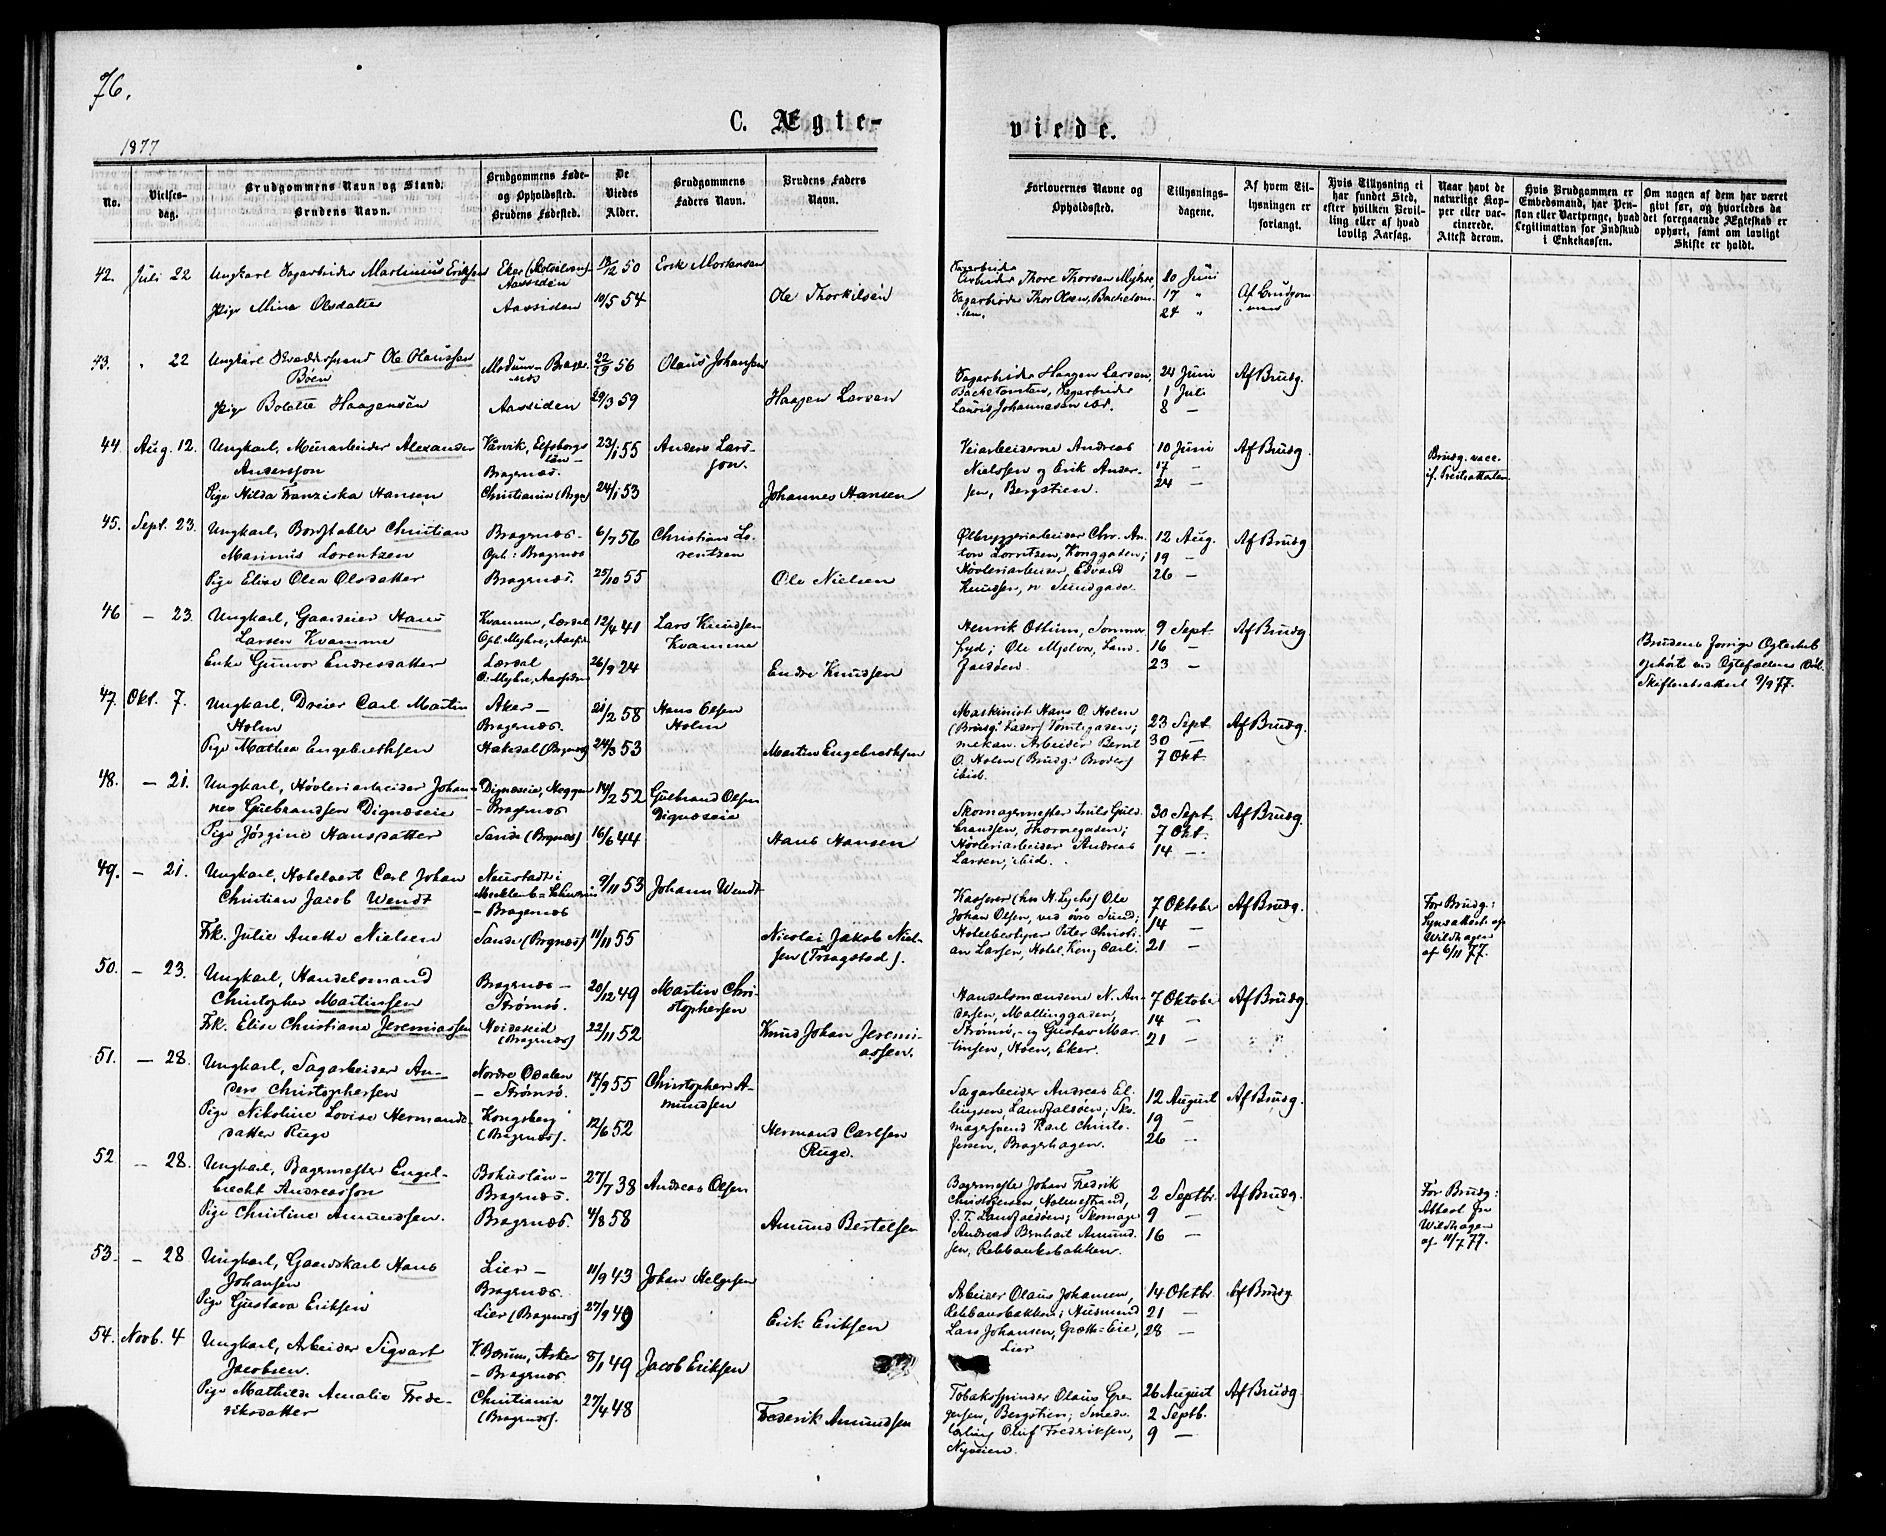 76.
C. Ægte-
viede.
1877
No.
Vielses-
dag.
Brudgommens Navn og Stand.
Brudens Navn.
Brudgommens Føde-
og Opholdssted.
Brudens Fødested.
De
Viedes
Alder.
Brudgommens
Faders Navn.
Brudens Faders
Navn.
Forlovernes Navne og
Opholdssted.
Tillysnings-
dagene.
Af hvem Til-
lysningen er
forlangt.
Hvis Tillysning ei
har fundet Sted,
efter hvilken Bevil-
ling eller af hvad
lovlig Aarsag.
Naar havt de
naturlige Kop-
per eller vac-
cinerede.
Attest derom.
Hvis Brudgommen er
Embedsmand, har Pen-
sion eller Vartpenge, hvad
Legitimation for Indskud
i Enkekassen.
Om nogen af dem har været
givt før, og hvorledes da
det foregaaende Ægteskab er
ophørt, samt om lovligt
Skifte er holdt.
42. Juli 22
Ungkarl Sagarbeider Martinius Eriksen
Pige Mina Olsdatter
Eker
Aassiden
Aassiden
/12 50
10/5 54
Erik Mortensen
Ole Thorkilsen
Sagarbeider
Arbeider Thore Thorsen Myhre,
Sagarbeider Thor Olsen, Bachetom-
ten.
20 Juni
17 "
24 "
Af Brudgom-
men
43. " 22
Ungkarl Skræddersvend Ole Olaussen
Böen
Pige Bolette Haagensen
Modum - Brager-
næs
Aassiden
56
29/3 59
Olaus Johansen
Haagen Larsen
Sagarbeider Haagen Larsen,
Bachetomten, Sagarbeider
Lauris Johannesen ibd.
24 Juni
1 Juli
8 —
Af Brudg.
44 Aug. 12.
Ungkarl, Murarbeider Alexander
Andersson
Pige Hilda Franziska Hansen
Elfsborgs
län -
Bragernæs.
Christiania (Brgs)
23/1 55
24/1 53
Anders Lars-
son.
Johannes Hansen
Veiarbeiderne Andreas
Nielssen og Erik Ander-
sen, Bergstien.
10 Juni
17 —
24 —
Af Brudg.
Brudg. vacc.
if. Presteattesten
45. Sept. 23.
Ungkarl, Bordstabler Christian
Marinius Lorentzen
Pige Elise Olea Olsdatter
Bragernæs -
Oph: Bragernæs
Bragernæs.
6/7 56
25/10 55
Christian Lo-
rentzen
Ole Nielsen
Ølbryggeriarbeider Chr. An-
ton Lorntzen, Konggaden;
Høvleriarbeider, Edvard
Knudsen, n Sundgade.
12 Aug.
19 —
26 —
Af Brudg
46 — 23.
Ungkarl, Gaardeier Hans
Larsen Kvamme
Enke Gunvor Endresdatter
Kvamme, Lærdal
Oph. Myhre, Aassiden
Lærdal
O: Myhre, Aassiden
12/4 41
26/9 24
Lars Knudsen
Kvamme
Endre Knudsen
Henrik Ottum, Sommer-
fryd; Ole Mjelva, Land-
falsöen.
9 Sept
16 —
23 —
Af Brudg
Brudens forrige Egteskab
ophørt ved Egtefællens Död.
Skifteretsattest 9/9 77.
47. Okt. 7.
Ungkarl, Dreier Carl Martin
Holm
Pige Mathea Engebrethsen
Aker -
Bragernæs.
Hakedal (Brgnæs)
21/2 58
24/3 53
Hans Olsen
Holm
Martin Engebrethsen
Maskinist Hans O. Holm
(Brudg.s Fader) Tomtegaden;
mekan. Arbeider Bernt
O. Holm (Brudg.s Broder)
ibid.
23 Sept
30 —
7 Okt.
Af Brudg.
48. — 21.
Ungkarl, Høvleriarbeider Johan-
nes Gulbrandsen Digneseie
Pige Jørgine Hansdatter
Digneseie, Heggen
- Bragernæs
Sande (Brgnæs)
14/2 52
16/6 44
Gulbrand Olsen
Digneseie
Hans Hansen
Skomagermester Guld-
brandsen, Thornegaden;
Høvleriarbeider Andreas
Larsen, ibid.
30 Sept
7 Okt.
14 —
Af Brudg.
49. — 21.
Ungkarl, Hotelvert Carl Johan
Christian Jacob Wendt
Frk. Julie Anette Nielsen
Neustadt i
Mecklenb-Schwerin
- Bragernæs
Sande (Brgnæs)
9/11 53
11/11 55
Johann Wendt
Nicolai Jakob Niel-
sen (Trøgstad).
Kasserer (hos H. Lyche) Ole
Johan Olsen, ved øvre Sund;
Hotelbestyrer Peter Christi-
an Larsen, Hotel Kong Carl.
7 Oktober
14 —
21 —
Af Brudg.
For Brudg:
Synsattest af
Wildhagen
af 6/11 77.
50. — 23.
Ungkarl, Handelsmand
Christopher Martinsen
Frk. Elise Christiane Jeremiassen
Bragernæs -
Strømsø.
Hvideseid
(Bragernæs)
20/12 49
22/11 52
Martin Chri-
stophersen
Knud Johan Jeremi-
assen.
Handelsmændene N. An-
dersen, Mallinggaden,
Strømsø, - og Gustav Mar-
tinsen, Hoen, Eker.
7 Oktober
14 —
21 —
Af Brudg
51. — 28.
Ungkarl, Sagarbeider An-
ders Christophersen
Pige Nikoline Lovise Hermands-
datter Ruge
Nordre Odalen
- Strømsø.
Kongsberg
(Bragernæs).
17/9 55
12/6 52
Christopher A-
mundsen
Hermand Carlsen
Ruge.
Sagarbeider Andreas El-
lingsen, Landfalsöen; Sko-
magersvend Karl Christo-
fersen, Bragerhagen.
12 August
19 —
26 —
Af Brudg.
52 — 28.
Ungkarl, Bagermester Engel-
brecht Andreasson
Pige Christine Amundsen.
Bohuslän -
Bragernæs.
Bragernæs.
27/7 38
4/8 58
Andreas Olsen
Amund Bertelsen
Bagermester Johan Fredrik
Christofersen, Holmestrand,
f. T. Landfalsöen; Skomager
Andreas Bernhart Amund-
sen, Rebbansbakken.
2 Septbr.
9 —
16 —
Af Brudg.
For Brudg:
Attest fra
Wildhagen
af 11/7 77.
53. — 28
Ungkarl, Gaardskarl Hans
Johansen
Pige Gustava Eriksen
Lier -
Bragernæs.
Lier (Bragernæs)
11/9 43
27/9 49
Johan Helgesen
Erik Eriksen
Arbeider Olaus Johansen,
Rebbansbakken; Husmand
Lars Johansen, Grøtte-Eie,
Lier
14 Oktbr.
21 —
28 —
Af Brudg
54. Novb. 4
Ungkarl, Arbeider Sigvart
Jacobsen.
Pige Mathilde Amalie Frede-
riksdatter
V. Bærum, Asker
- Bragernæs.
Christiania
(Bragernæs).
8/1 49
27/4 48
Jacob Eriksen
Frederik Amundsen
Tobakspinder Olaus Gre-
gersen, Bergstien; Smede-
lærling Oluf Fredriksen,
Nyveien.
26 August
2 Septb.
9 —
Af Brudg.